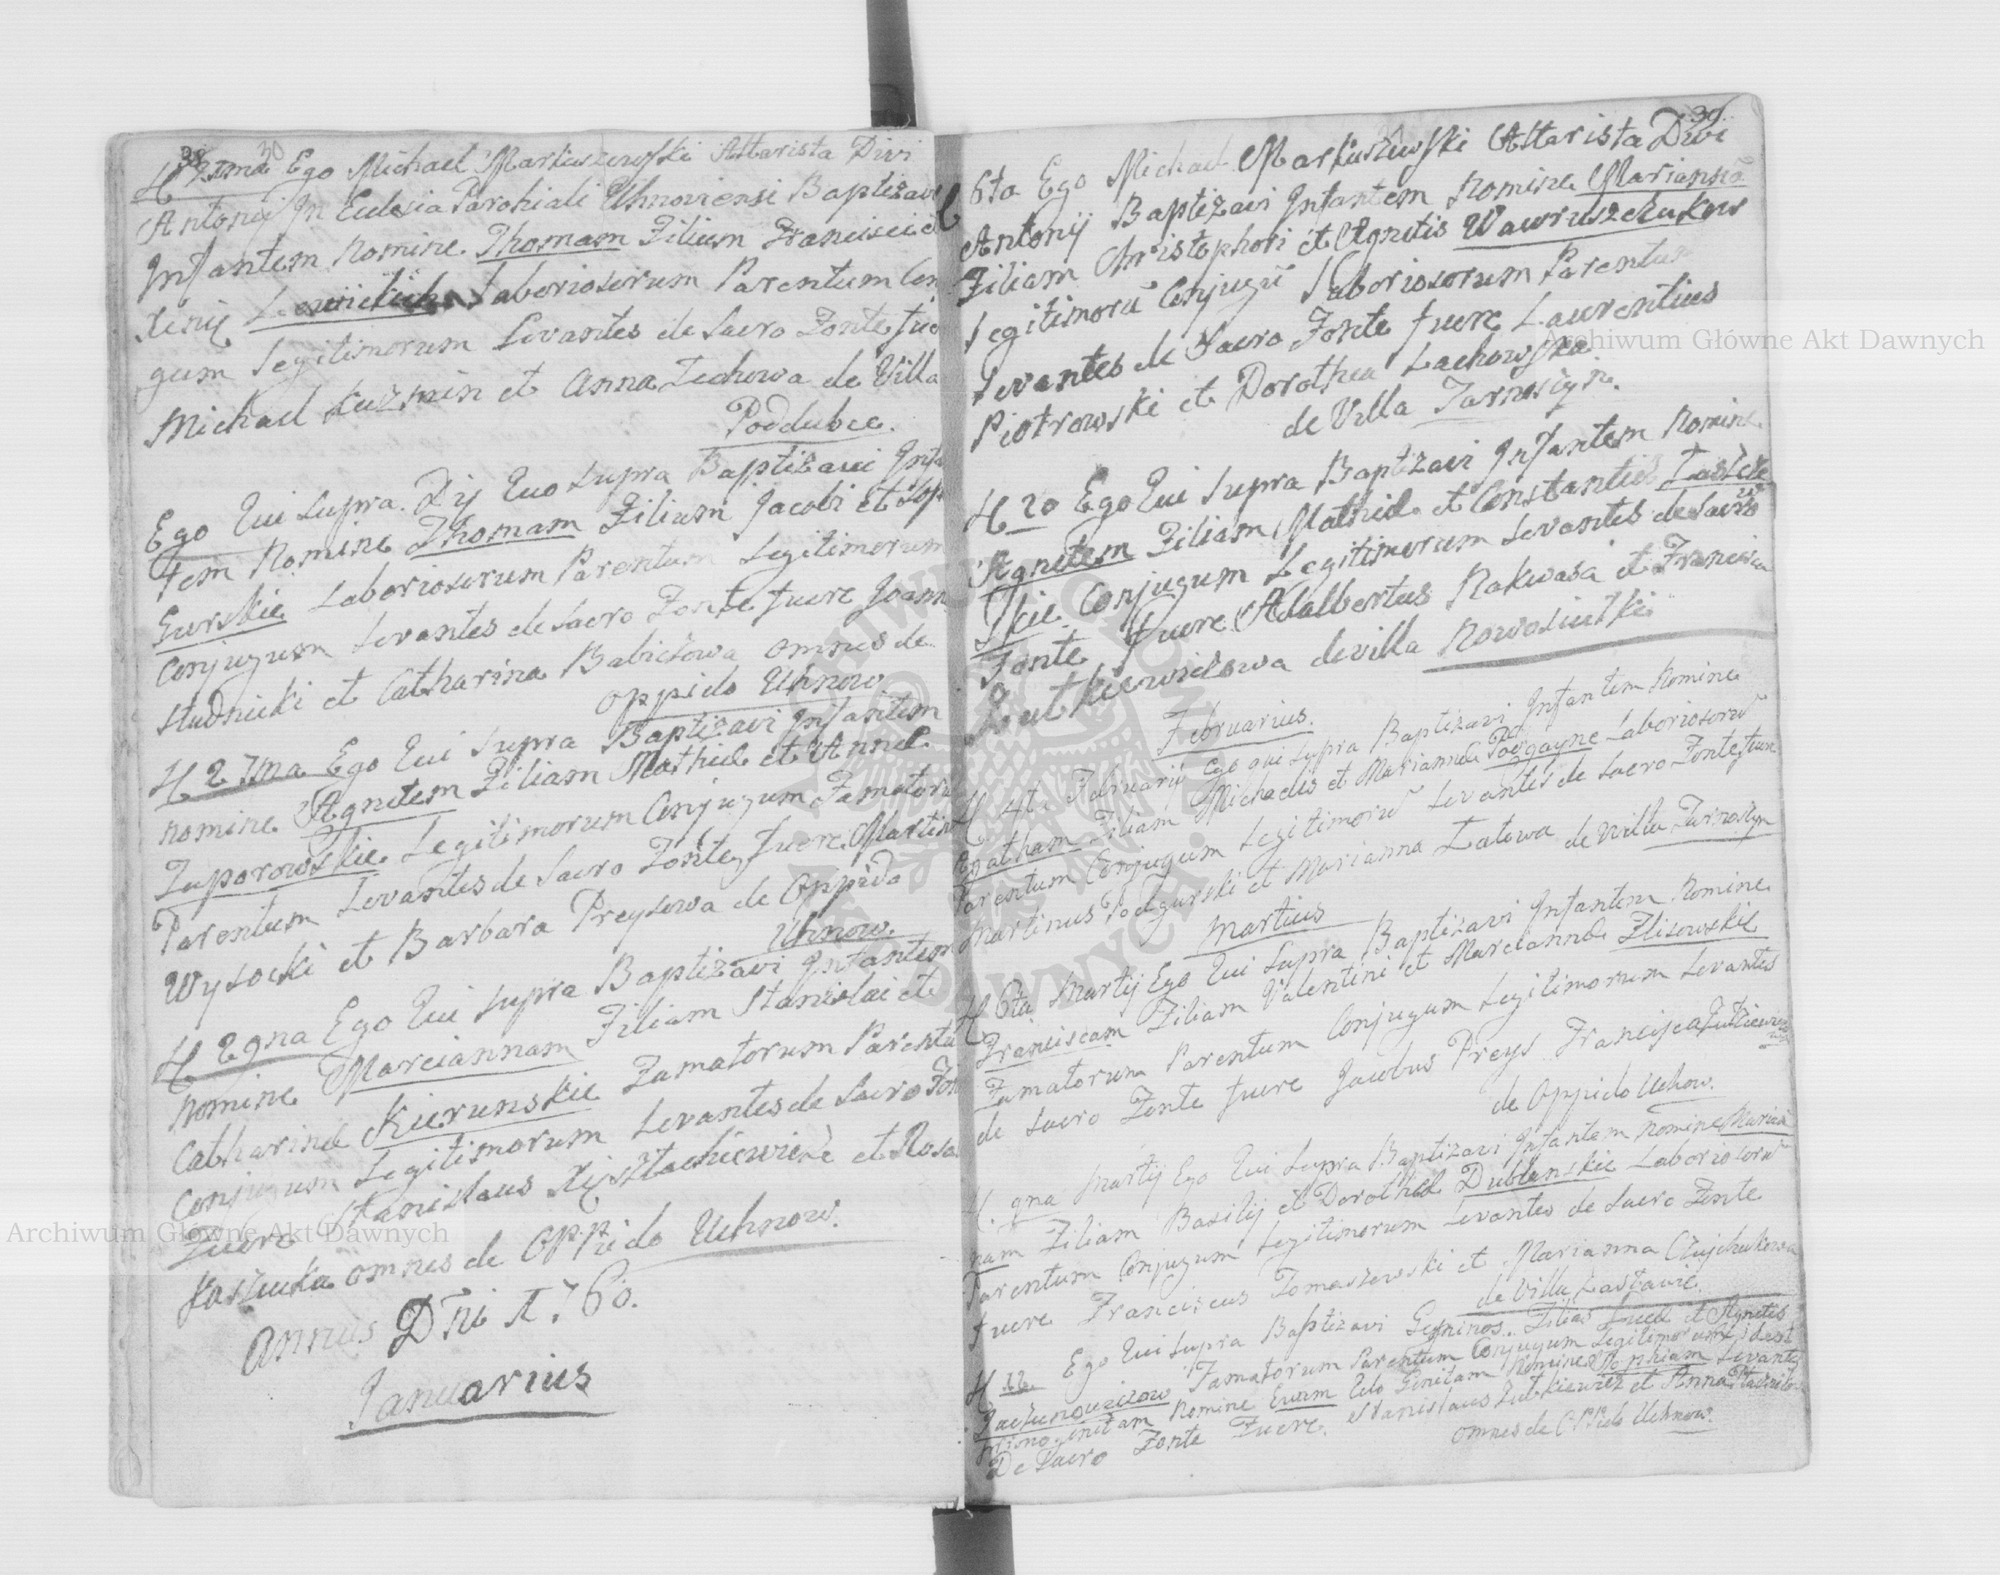 38 30
Ego Michael Martuszewski Altarista Divi
Antonij In Eclesia Parohiali Uhnoviensi Baptizavi
Infantem Nomine Thomam Filium Francisci et
Xenij Laboriosorum Parentum Con
gum Legitimorum Levantes de Sacro Fonte fuere
Michael Kuzmin et Anna Lechowa de Villa
Poddubce.
Ego Qui Supra Baptizavi Infan
tem Nomine Thomam Filium Jacobi et
Gurskie Laboriosorum Parentum Legitimorum
Conjugum Levantes de Sacro Fonte fuere Joann
Studnicki et Catharina Babiczowa omnes de
oppido Uhnow
H 27ma Ego Qui Supra Baptizavi Infantem
nomine Agnetem Filiam Mathiæ et Annæ
Zuporowskie Legitimorum Conjugum Famatoru
Parentum Levantes de Sacro Fonte fuere Martin
Wysocki et Barbara Preysowa de Oppido
Uhnow.
H 29na Ego Qui Supra Baptizavi Infantem
Nomine Marciannam Filiam Stanislai et
Catharinæ Kierunskie Famatorum Parentu
Conjugum Legitimorum Levantes de Sacro Fon
Fuere Stanislaus et Rosa
omnes de Oppido Uhnow.
Annus Dni 1760.
Januarius
39
6ta Ego Michael Martuszewski Altarista Divi
Antonij Baptizavi Infantem Nomine Mariannã
Filiam Christophori et Agnetis Wawruszczukow
Legitimorũ Conjugũ Laboriosorum Parentum
Levantes de Sacro Fonte fuere Laurentius
Piotrowski et Dorothea Lachowska
de Villa Tarnoszyn.
H 20 Ego Qui Supra Baptizavi Infantem Nomine
Agnetem Filiam Mathiæ et Constantiæ
Skie Conjugum Legitimorum Levantes de Sacro
Fonte fuere Adalbertus Rokwasa et Francisca
Zutkiewiczowa de villa Nowosiułki
Februarius.
H 4ta Februarij Ego qui Supra Baptizavi Infantem Nomine
Agatham Filiam Michaelis et Mariannæ Laboriosorũ
Parentum Conjugum Legitimorũ Levantes de Sacro Fonte fuere
Martinus Podgurski et Marianna Łatowa de Villa Turnoszyn
Martius
H 6ta Martij Ego Qui Supra Baptizavi Infantem Nomine
Franciscam Filiam Valentini et Marciannæ Zlisowskie
Famatorum Parentum Conjugum Legitimorum Levantes
de Sacro Fonte fuere Jacobus Preys Francisca
de Oppido Uhnow.
H 9na Martij Ego Qui Supra Baptizavi Infantem Nomine Marian
nam Filiam Basilij et Dorotheæ Dublanskie Laboriosorũ
Parentum Conjugum Legitimorum Levantes de Sacro Fonte
fuere Franciscus Tomaszewski et Marianna
de Villa
H 12 Ego Qui Supra Baptizavi Geminos Filias Lucæ et Agnetis
Famatorum Parentum Conjugum Legitimorum id est
Primogenitam Nomine Evam Nomine Sophiam Levantes
De Sacro Fonte Fuere Stanislaus Zutkiewicz et Anna
omnes de Oppido Uhnow.
Archiwum Główne Akt Dawnych
Archiwum Główne Akt Dawnych